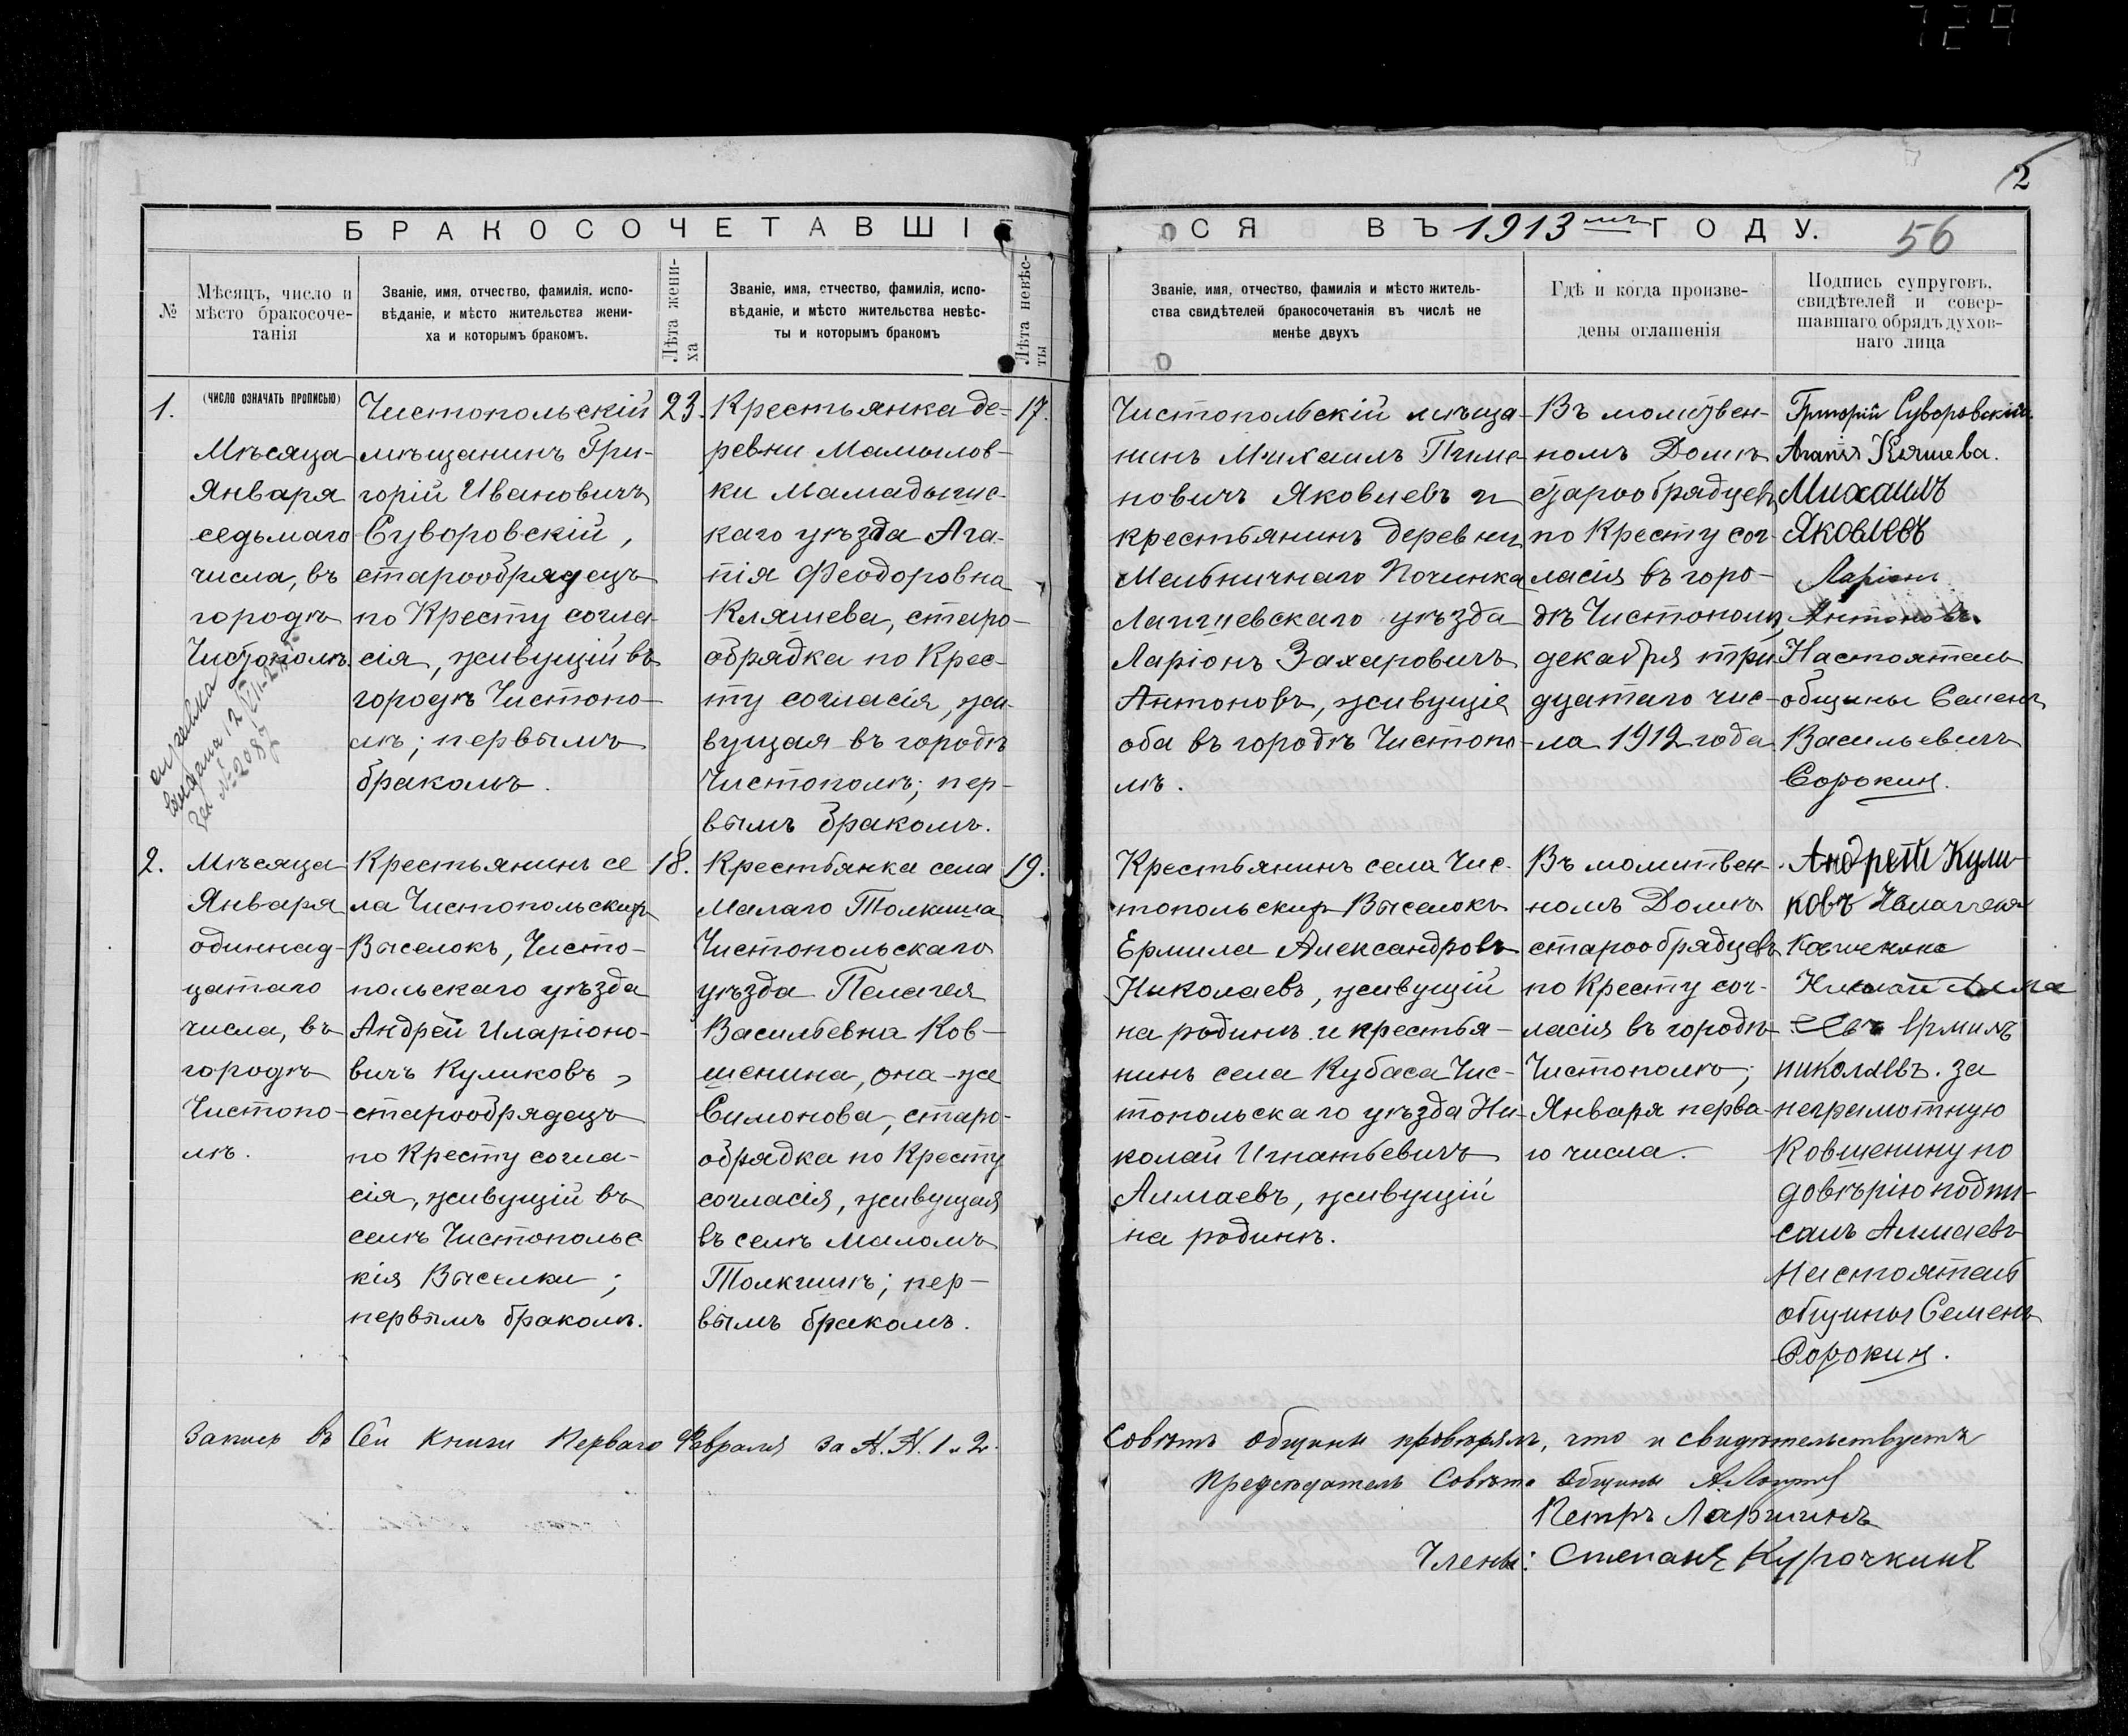 2
БРАКОСОЧЕТАВШІЕСЯ ВЪ 1913мъ ГОДУ.
56
№
Мѣсяцъ, число и
мѣсто бракосоче-
танія
Званіе, имя, отчество, фамилія, испо-
вѣданіе, и мѣсто жительства жени-
ха и которымъ бракомъ.
Лѣта жени-
ха
Званіе, имя, отчество, фамилія, испо-
вѣданіе, и мѣсто жительства невѣс-
ты и которымъ бракомъ
Лѣта невѣс-
ты
Званіе, имя, отчество, фамилія и мѣсто житель-
ства свидѣтелей бракосочетанія въ числѣ не
менѣе двухъ
Гдѣ и когда произве-
дены оглашенія
Подпись супруговъ,
свидѣтелей и совер-
шавшаго обрядъ духов-
наго лица
1.
(ЧИСЛО ОЗНАЧАТЬ ПРОПИСЬЮ)
Мѣсяца
Января
седьмаго
числа, въ
городѣ
Чистополѣ
справка
выдана 12
за № 2087
Чистопольскій
мѣщанинъ Гри-
горій Ивановичъ
Суворовскій,
старообрядецъ
по Кресту согла-
сія, живущій въ
городѣ Чистопо-
лѣ; первымъ
бракомъ.
23.
Крестьянка де-
ревни Мамылов-
ки Мамадышс-
каго уѣзда Ага-
пія Феодоровна
Кляшева, старо-
обрядка по Крес-
ту согласія, жи-
вущая въ городѣ
Чистополѣ; пер-
вымъ бракомъ.
17.
Чистопольскій мѣща-
нинъ Михаилъ Пиме-
новичъ Яковлевъ и
крестьянинъ деревни
Мельничнаго Починка
Лаишевскаго уѣзда
Ларіонъ Захаровичъ
Антоновъ, живущіе
оба въ городѣ Чистопо-
лѣ.
Въ молитвен-
номъ Домѣ
старообрядцевъ
по Кресту сог-
ласія въ горо-
дѣ Чистополѣ,
декабря три
дцатаго чис-
ла 1912 года
Григорій Суворовскій.
Агапія Кляшева.
Михаилъ
Яковлевъ
Ларіонъ
Антоновъ.
Настоятель
общины Семенъ
Васильевичъ
Сорокин.
2.
Мѣсяца
Января
одиннад-
цатаго
числа, въ
городѣ
Чистопо-
лѣ.
Крестьянинъ се
ла Чистопольскихъ
Выселокъ, Чисто-
польскаго уѣзда
Андрей Иларіоно-
вичъ Куликовъ,
старообрядецъ
по Кресту согла-
сія, живущій въ
селѣ Чистопольс
кія Выселки;
первымъ бракомъ.
18.
Крестьянка села
Малаго Толкиша
Чистопольскаго
уѣзда Пелагея
Васильевна Ков-
шенина, она-же
Симонова, старо-
обрядка по Кресту
согласія, живущая
въ селѣ Маломъ
Толкишѣ; пер-
вымъ бракомъ.
19.
Крестьянинъ села Чис-
топольскихъ Выселокъ
Ермила Александровъ
Николаевъ, живущій
на родинѣ и крестья-
нинъ села Кубаса Чис-
топольскаго уѣзда Ни-
колай Игнатьевичъ
Алмаевъ, живущій
на родинѣ.
Въ молитвен-
номъ Домѣ
старообрядцевъ
по Кресту сог-
ласія въ городѣ
Чистополѣ;
Января перва-
го числа.
Андрей Кули-
ковъ
Ермилъ
николаевъ. за
неграмотную
Ковшенину по
довѣрію подпи-
салъ Алмаевъ
Настоятель
общины Семенъ
Сорокин.
Запись въ Сей книги Перваго Февраля за N.N. 1 и 2.
Совѣтъ общины провѣрялъ, что и свидѣтельствуетъ
Предсѣдатель Совѣта Общины
Петръ Ларигинъ
Члены: Степанъ Курочкинъ